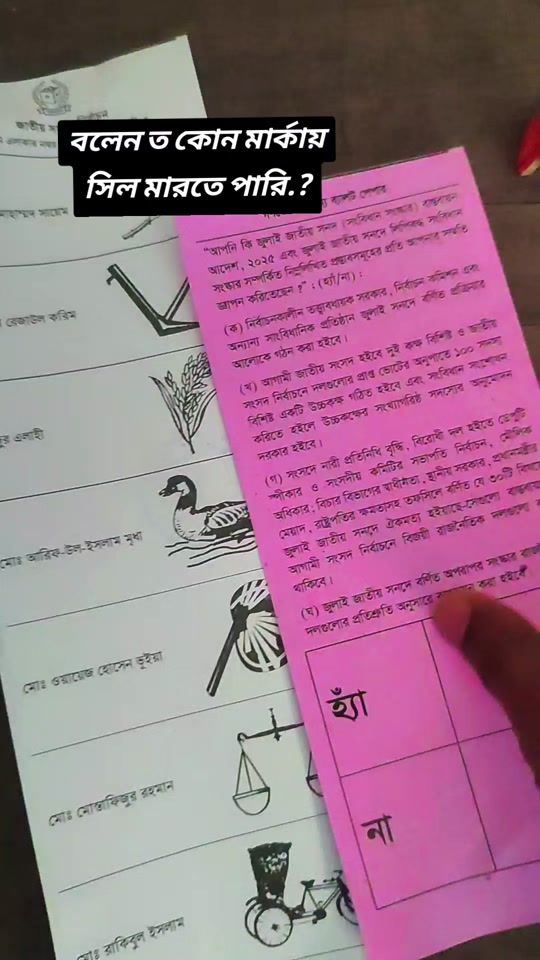 বলেন ত কোন মার্কায়
সিল মারতে পারি.?
জাতীয়
সায়েম
রেজাউল করিম
এলাহী
মোঃ আরিফ-উল-ইসলাম মৃধা
মোঃ ওয়ায়েজ হোসেন ভূইয়া
মোঃ মোস্তাফিজুর রহমান
মোঃ রাকিবুল ইসলাম
ব্যালট পেপার
"আপনি কি জুলাই জাতীয় সনদ (সংবিধান সংস্কার) বাস্তবায়ন
আদেশ, ২০২৫ এবং জুলাই জাতীয় সনদে লিপিবদ্ধ সংবিধান
সংস্কার সম্পর্কিত নিম্নলিখিত প্রস্তাবসমূহের প্রতি আপনার সম্মতি
জ্ঞাপন করিতেছেন ?" : (হ্যাঁ/না) :
(ক) নির্বাচনকালীন তত্ত্বাবধায়ক সরকার, নির্বাচন কমিশন এবং
অন্যান্য সাংবিধানিক প্রতিষ্ঠান জুলাই সনদে বর্ণিত প্রক্রিয়ার
আলোকে গঠন করা হইবে।
(খ) আগামী জাতীয় সংসদ হইবে দুই কক্ষ বিশিষ্ট ও জাতীয়
সংসদ নির্বাচনে দলগুলোর প্রাপ্ত ভোটের অনুপাতে ১০০ সদস্য
বিশিষ্ট একটি উচ্চকক্ষ গঠিত হইবে এবং সংবিধান সংশোধন
করিতে হইলে উচ্চকক্ষের সংখ্যাগরিষ্ঠ সদস্যের অনুমোদন
দরকার হইবে।
(গ) সংসদে নারী প্রতিনিধি বৃদ্ধি, বিরোধী দল হইতে ডেপুটি
স্পীকার ও সংসদীয় কমিটির সভাপতি নির্বাচন, মৌলিক
অধিকার, বিচার বিভাগের স্বাধীনতা, স্থানীয় সরকার, প্রধানমন্ত্রীর
মেয়াদ, রাষ্ট্রপতির ক্ষমতাসহ তফসিলে বর্ণিত যে ৩০টি বিষয়ে
জুলাই জাতীয় সনদে ঐকমত্য হইয়াছে-সেগুলো বাস্তবায়নে
আগামী সংসদ নির্বাচনে বিজয়ী রাজনৈতিক দলগুলো
থাকিবে।
(ঘ) জুলাই জাতীয় সনদে বর্ণিত অপরাপর সংস্কার
দলগুলোর প্রতিশ্রুতি অনুসারে করা হইবে
হ্যাঁ
না